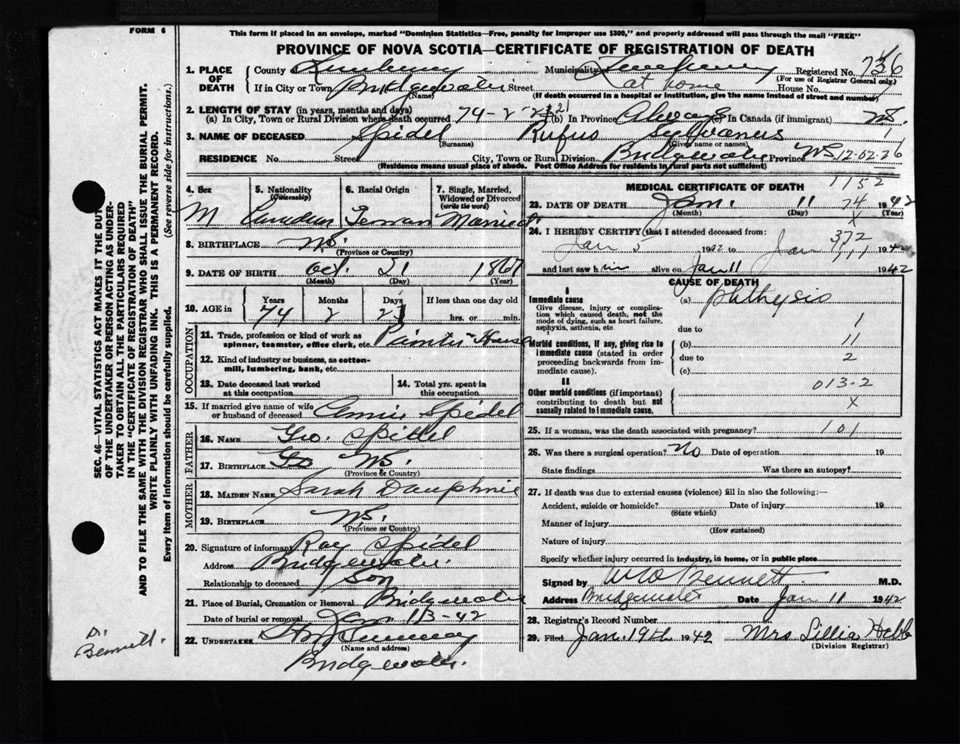 FORM 6
This form if placed in an envelope, marked "Dominion Statistics—Free, penalty for improper use $300," and properly addressed will pass through the mail "FREE"
PROVINCE OF NOVA SCOTIA—CERTIFICATE OF REGISTRATION OF DEATH
1. PLACE OF DEATH County Lunenburg Municipality Lunenburg Registered No. 736
(For use of Registrar General only)
If in City or Town Bridgewater Street at home House No.
(Name) (If death occurred in a hospital or institution, give the name instead of street and number)
2. LENGTH OF STAY (in years, months and days)
(a) In City, Town or Rural Division where death occurred 74-2-21 (b) In Province Always (c) In Canada (if immigrant)
3. NAME OF DECEASED Spidel Rufus Sylvanus
(Surname) (Given name or names)
RESIDENCE No. Street City, Town or Rural Division Bridgewater Province NS 12-02-26
(Residence means usual place of abode. Post Office Address for residents in rural parts not sufficient)
4. Sex 5. Nationality (Citizenship) 6. Racial Origin 7. Single, Married, Widowed or Divorced (write the word)
M Canadian German Married
8. BIRTHPLACE N.S.
(Province or Country)
9. DATE OF BIRTH Oct. 21 1867
(Month) (Day) (Year)
10. AGE Years Months Days If less than one day old
74 2 21 hrs. or min.
OCCUPATION
11. Trade, profession or kind of work as spinner, teamster, office clerk, etc. Painter House
12. Kind of industry or business, as cotton-mill, lumbering, bank, etc.
13. Date deceased last worked at this occupation 14. Total yrs. spent in this occupation
15. If married give name of wife or husband of deceased Annie Spidel
FATHER
16. NAME Geo. Spidel
17. BIRTHPLACE N.S.
(Province or Country)
MOTHER
18. MAIDEN NAME Sarah Dauphnie
19. BIRTHPLACE N.S.
(Province or Country)
20. Signature of informant Roy Spidel
Address Bridgewater
Relationship to deceased Son
21. Place of Burial, Cremation or Removal Bridgewater
Date of burial or removal Jan 13-42
22. UNDERTAKER
(Name and address)
Bridgewater.
MEDICAL CERTIFICATE OF DEATH
1152
23. DATE OF DEATH Jan. 11 1942
74
(Month) (Day) (Year)
X
24. I HEREBY CERTIFY that I attended deceased from:
372
Jan 5 1942 to Jan 11 1942
and last saw him alive on Jan 11 1942
CAUSE OF DEATH
I
Immediate cause (a) Phthysis
Give disease, injury or complication which caused death, not the mode of dying, such as heart failure, asphyxia, asthenia, etc.
due to 1
Morbid conditions, if any, giving rise to immediate cause (stated in order proceeding backwards from immediate cause). (b) 11
due to 2
(c)
II 013-2
Other morbid conditions (if important) contributing to death but not causally related to immediate cause. X
25. If a woman, was the death associated with pregnancy? 101
26. Was there a surgical operation? No Date of operation 19
State findings Was there an autopsy?
27. If death was due to external causes (violence) fill in also the following:—
Accident, suicide or homicide? Date of injury 19
(State which)
Manner of injury
(How sustained)
Nature of injury
Specify whether injury occurred in industry, in home, or in public place
Signed by W O Bennett M.D.
Address Bridgewater Date Jan 11 1942
28. Registrar's Record Number
29. Filed Jan. 19th 1942 Mrs Lillia Hebb
(Division Registrar)
SEC. 46—VITAL STATISTICS ACT MAKES IT THE DUTY
OF THE UNDERTAKER OR PERSON ACTING AS UNDER-
TAKER TO OBTAIN ALL THE PARTICULARS REQUIRED
IN THE "CERTIFICATE OF REGISTRATION OF DEATH"
AND TO FILE THE SAME WITH THE DIVISION REGISTRAR WHO SHALL ISSUE THE BURIAL PERMIT.
WRITE PLAINLY WITH UNFADING INK. THIS IS A PERMANENT RECORD.
Every item of information should be carefully supplied. (See reverse side for instructions.)
Dr.
Bennett.